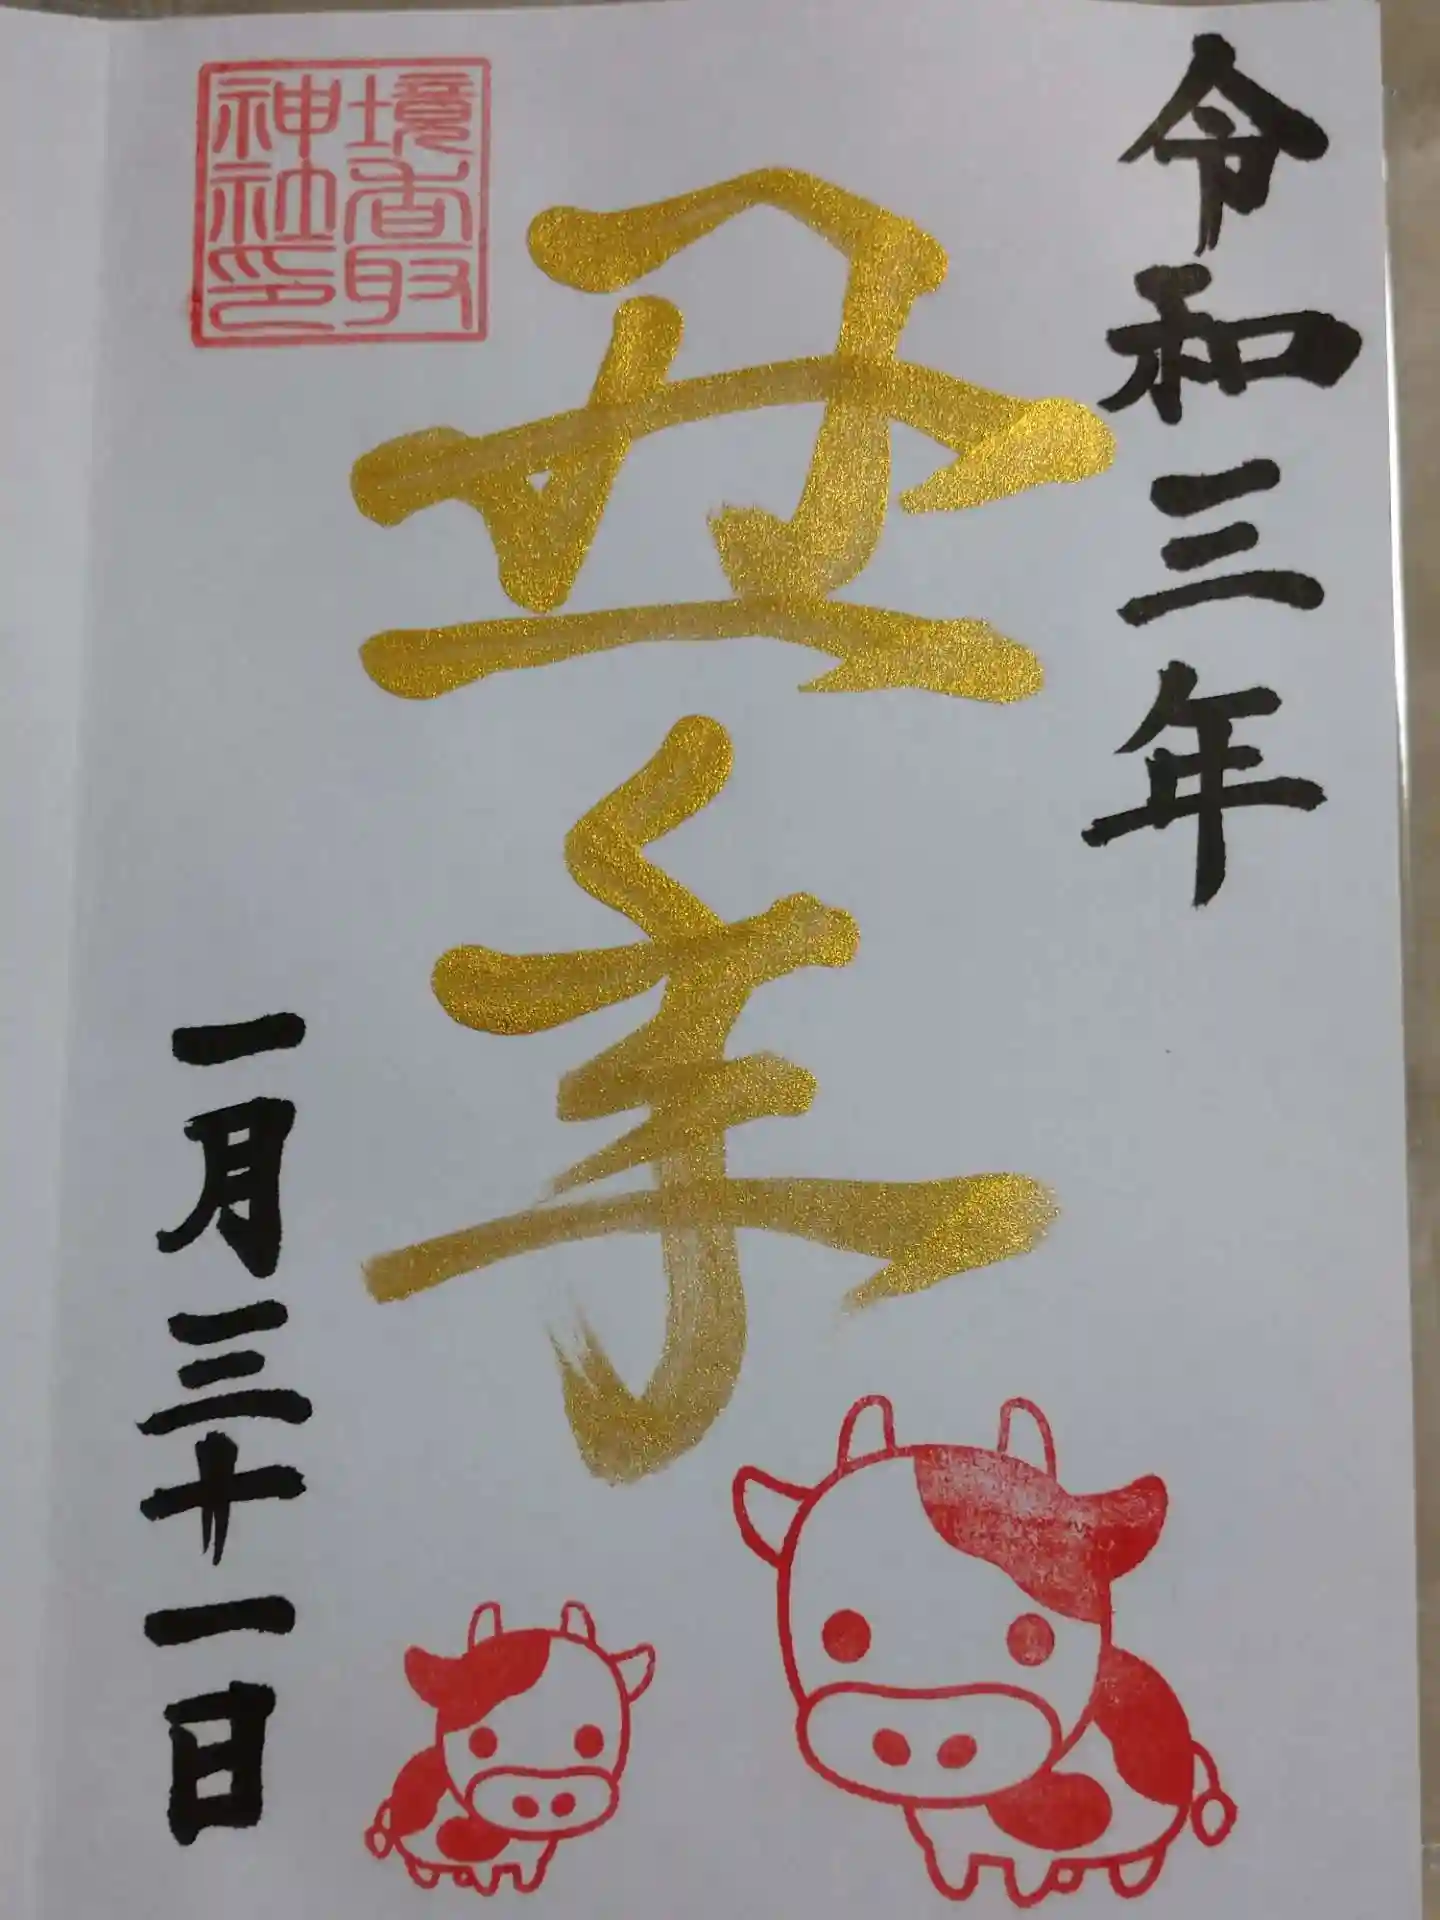 令和三年
丑年
境香取
神社印
一月三十一日